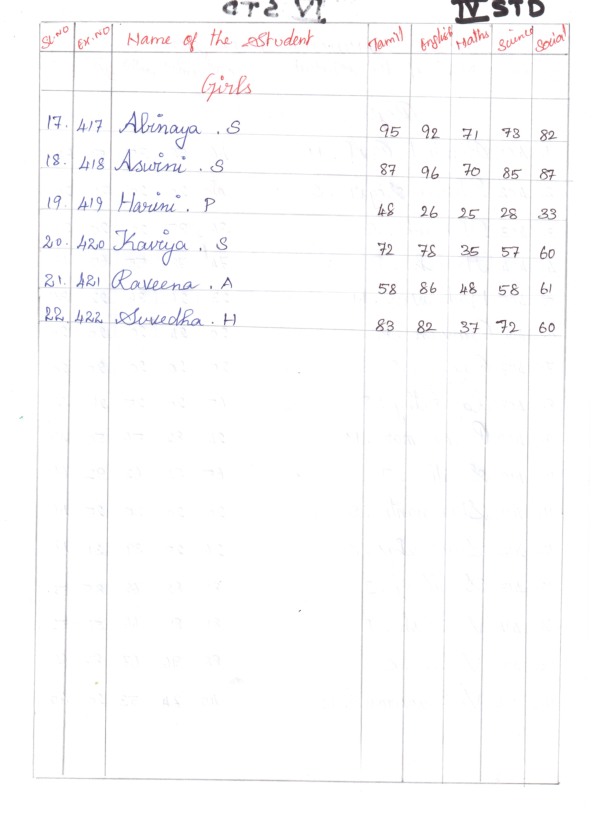 IV STD
SL.NO EX.NO Name of the Student Tamil English Maths Science Social
Girls
17. 417 Abinaya . S 95 92 71 73 82
18. 418 Aswini . S 87 96 70 85 87
19. 419 Harini . P 48 26 25 28 33
20. 420 Kaviya . S 72 78 35 57 60
21. 421 Raveena . A 58 86 48 58 61
22. 422 Suvedha . H 83 82 37 72 60